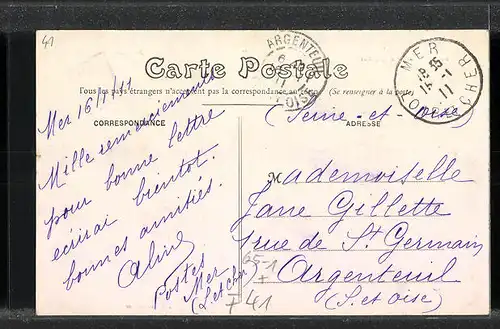 41
ARGENTEUIL
MER
LOIR ET CHER
Carte Postale
Tous les pays étrangers n'acceptent pas la correspondance au recto (Se renseigner à la poste)
(Seine-et-Oise)
CORRESPONDANCE
ADRESSE
Mer 16/1/11
Mille remerciements
pour bonne lettre
ecrirai bientot.
bonnes amitiés.
Aline
Postes
Mer
(L. et Cher)
Mademoiselle
Jane Gillette
1 rue de St Germain
Argenteuil
(S. et Oise)
65-1
+
F 41